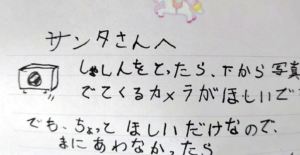 サンタさんへ
しゃしんをとったら、下から写真
でてくるカメラがほしいで
でも、ちょっと ほしいだけなので、
まにあわなかったら